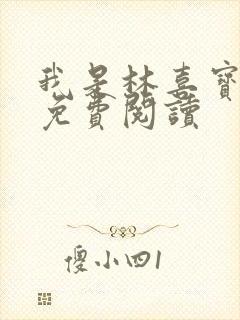 我是林喜寶
免費閱讀
傻小四1